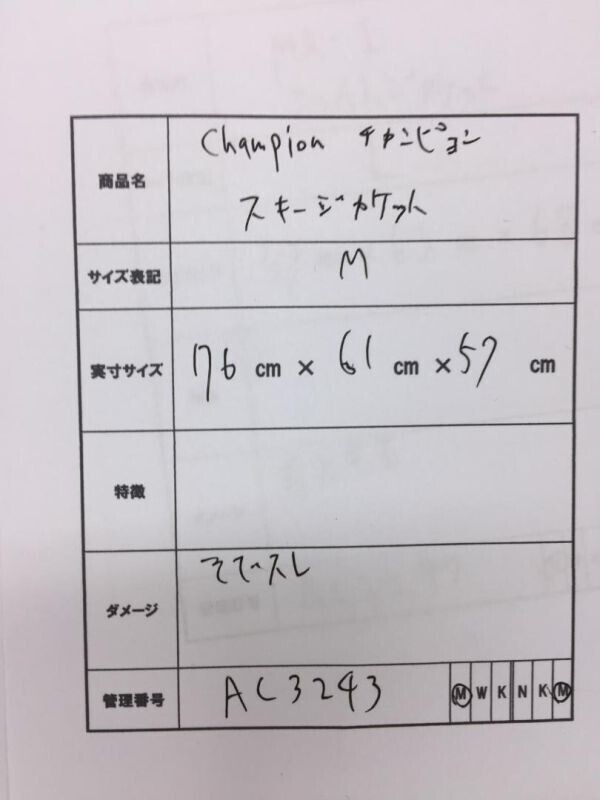 商品名
Champion チャンピオン
スキージャケット
サイズ表記 M
実寸サイズ 76 cm × 61 cm × 57 cm
特徴
ダメージ そでスレ
管理番号 AC3243 M W K N K M